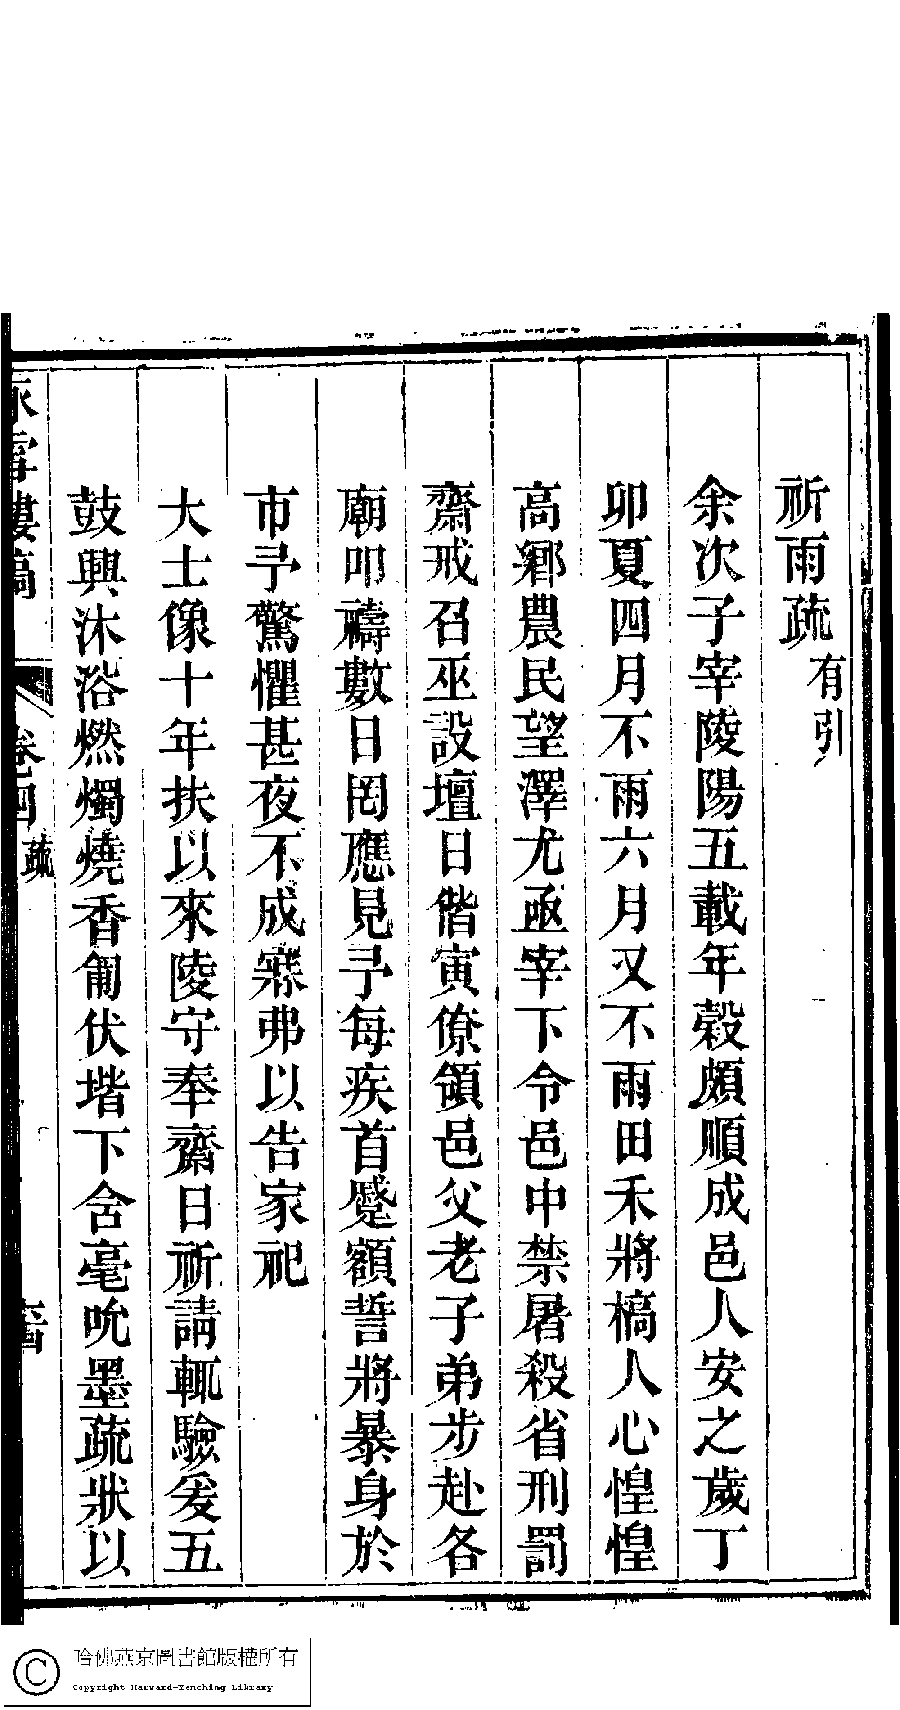 祈雨疏有引
余次子宰陵陽五載年穀頗順成邑人安之歲丁
卯夏四月不雨六月又不雨田禾將槁人心惶惶
高鄉農民望澤尤亟宰下令邑中禁屠殺省刑罰
齋戒召巫設壇日偕寅僚領邑父老子弟步赴各
廟叩禱數日罔應見予每疾首蹙額誓將暴身於
市予驚懼甚夜不成寐弗以告家祀
大士像十年扶以來陵守奉齋日祈請輒驗爰五
鼓興沐浴燃燭燒香匍伏堦下含毫吮墨疏狀以
雪樓稿
卷四
疏
哈佛燕京圖書館版權所有
Copyright Harvard-Yenching Library